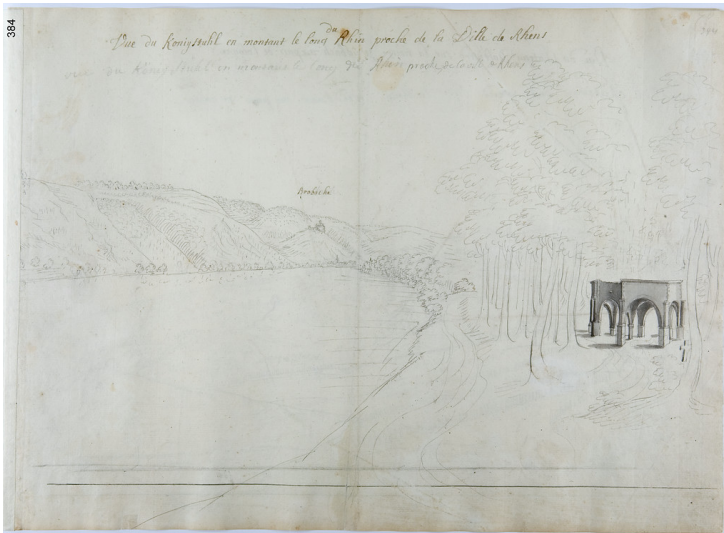 384
Vue du Konigstuhl en montant le long du Rhin proche de la Ville de Rhens
vue du Königstuhl en montant le long du Rhin proche de la ville de Rhens